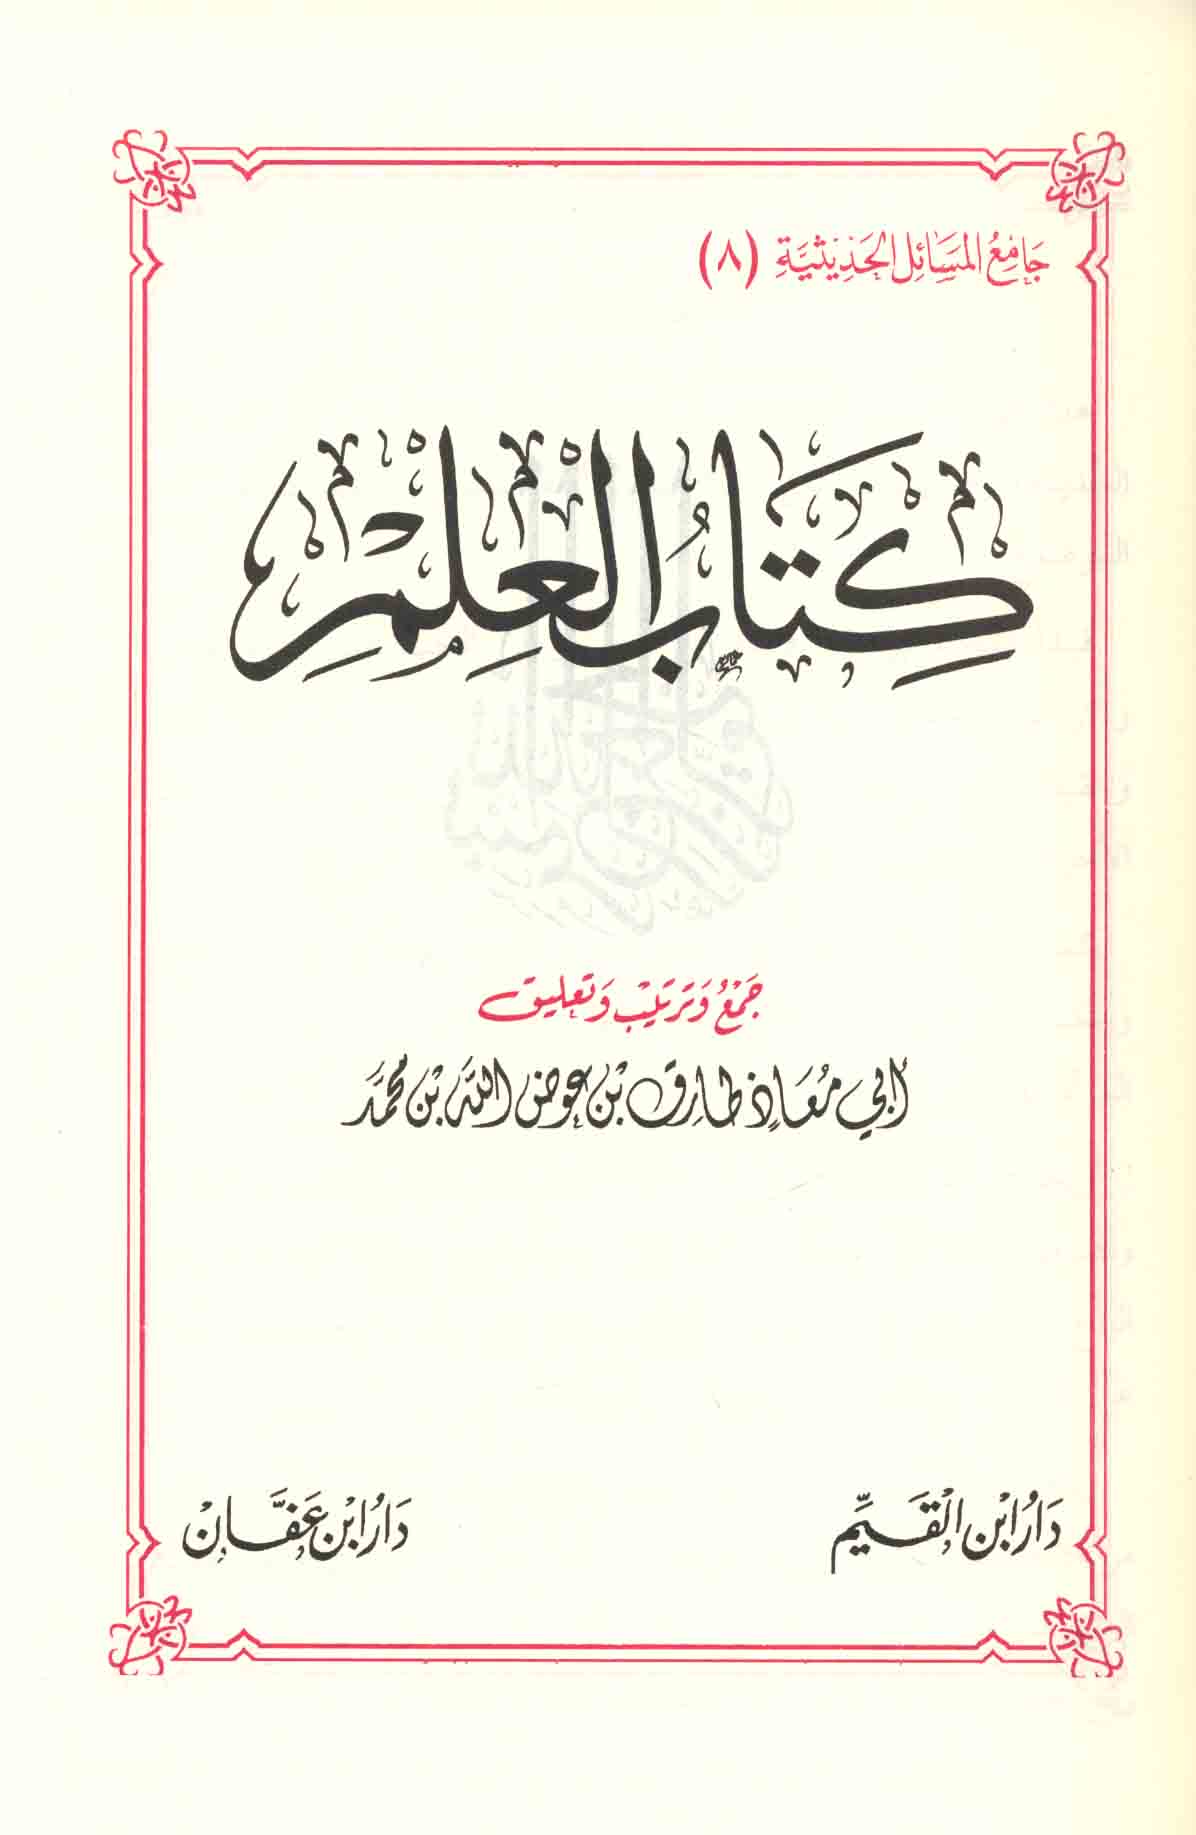 جَامِعُ المَسَائِل الحَدِيْثِيَّةِ (٨)
كِتَابُ الْعِلْمِ
جَمْعُ وَتَرتيْبُ وَتعليق
أبي مُعَاذ طَارِق بْن عوض اللَّه بْن محمَّد
دَارُ ابْن القَيِّم
دَارُ ابْن عَفَّان